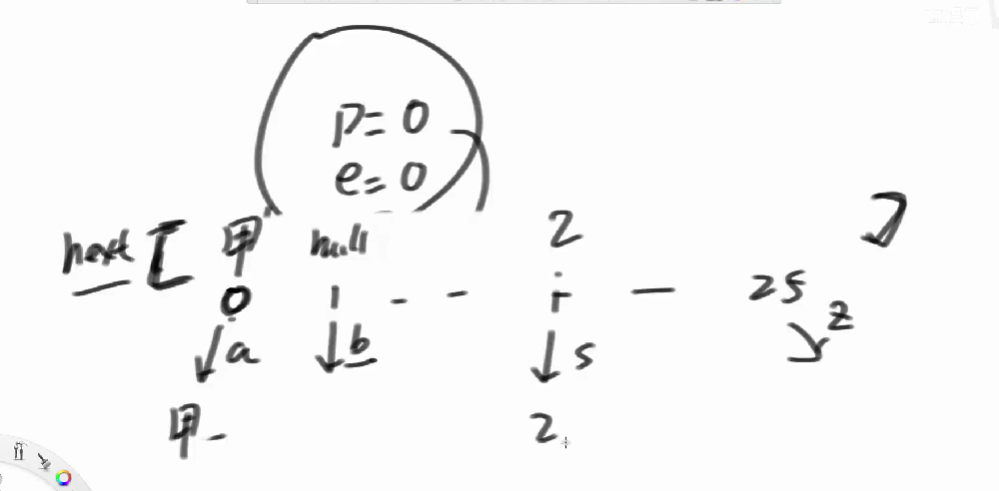 p=0
e=0
next [ 甲 null 2 ]
0 1 - - i — 25
a b s z
甲 2